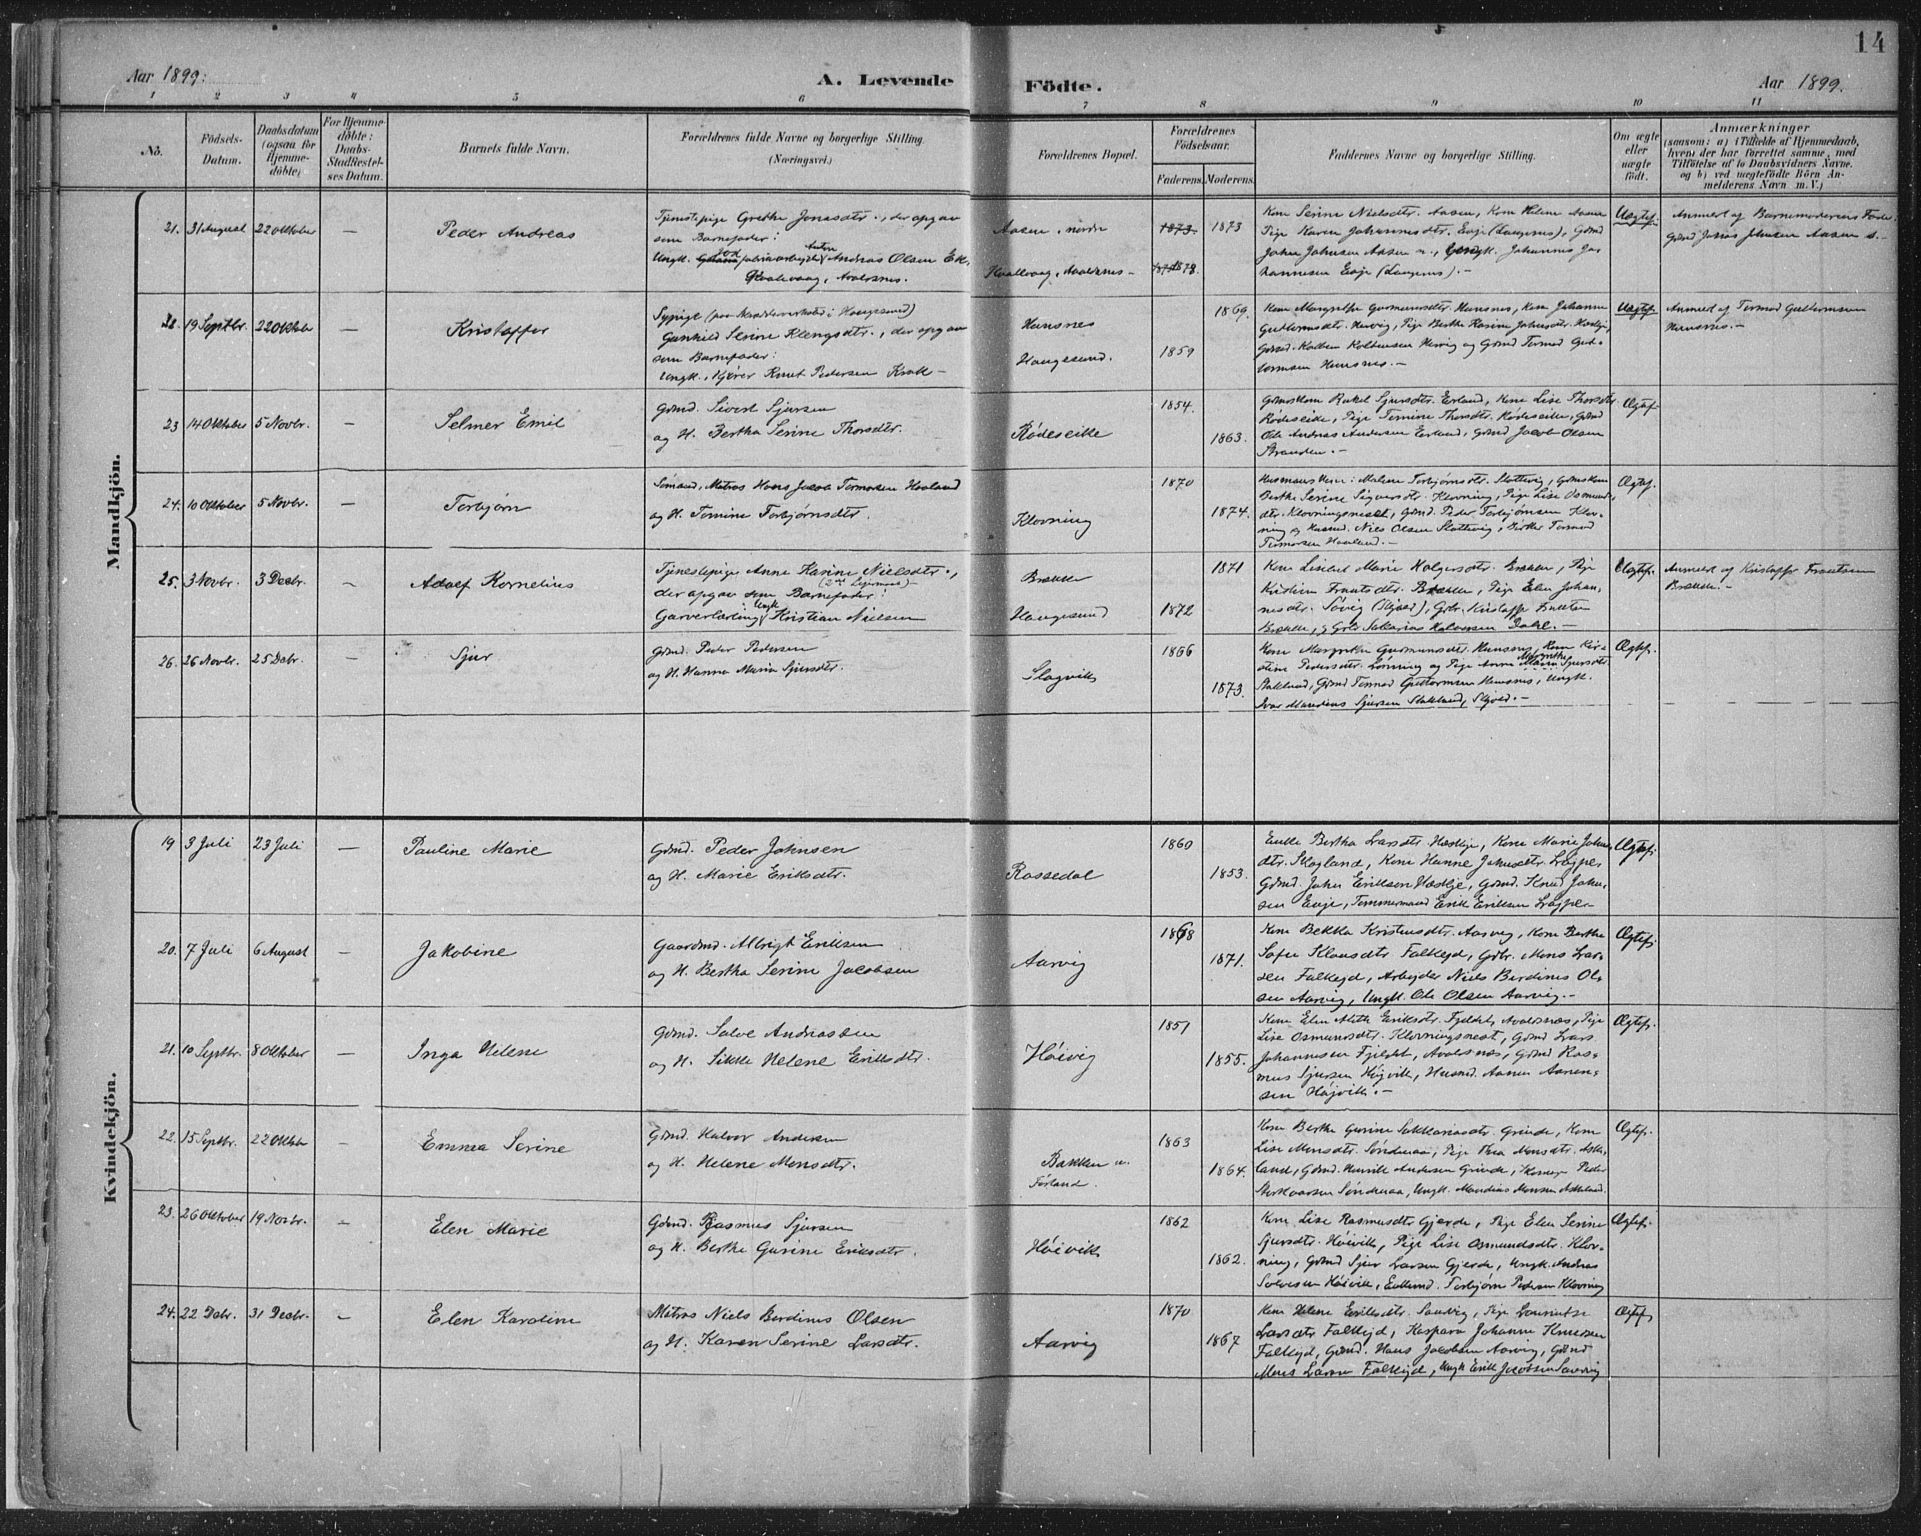 14
Aar 1899.
A. Levende Födte.
Aar 1899.
1 2 3 4 5 6 7 8 9 10 11
No.
Födsels-
Datum.
Daabsdatum
(ogsaa for
Hjemme-
døbte)
For Hjemme-
døbte:
Daabs-
Stadfæstel-
ses Datum.
Barnets fulde Navn.
Forældrenes fulde Navne og borgerlige Stilling
(Næringsvei.)
Forældrenes Bopæl.
Forældrenes
Födselsaar.
Faderens. Moderens.
Faddernes Navne og borgerlige Stilling.
Om ægte
eller
uægte
født.
Anmærkninger
(saasom: a) i Tilfælde af Hjemmedaab,
hvem der har forrettet samme, med
Tilföielse af to Daabsvidners Navne.
og b) ved uægtefödte Börn An-
melderens Navn m. V.)
Mandkjön.
21. 31 August 22 Oktober — Peder Andreas
Tjenestepige Grethe Jonasdtr., der opgav
som Barnefader:
Andreas Olsen
Kvalevaag, Avaldsnes.
Aasen nordre
Kvallevaag, Avaldsnes —
1873 1873
1878.
Kone Serine Nielsdtr. Aasen, Kone Helene Aasen
Pige Karen Johannesdtr. Eøje (Langenes), Gbmd
John Johnsen Aasen n., Ungk. Johannes Jo-
hannesen Eøje (Langenes). —
Uægtef.
Anmeldt af Barnemoderens Fader
Gbmd Jonas Johnsen Aasen n. —
22. 19 Septbr. 22 Oktober — Kristoffer
Gunhild Serine Klengsdtr., der opgav
som Barnefader:
Ungk., Kjører Knut Pedersen Krak —
Hemsnes
Haugesund.
1869.
1859
Kone Margrethe Gurmundsdtr. Hemsnes, Kone Johanne
Guttormsdtr. Hervig, Pige Berthe Karine Johnsdtr. Hædlje,
Gbmd. Kolben Kolbensen Hervig og Gbmd Tormod Gut-
tormsen Hemsnes. —
Uægtef.
Anmeldt af Tormod Guttormsen
Hemsnes. —
23 14 Oktober 5 Novbr. — Selmer Emil
Gbmd. Sivert Sjursen
og H. Bertha Serine Thorsdtr.
Rødeseike
1854.
1863.
Gbmdskone Rakel Sjursdtr. Eirland, Kone Lise Thorsdtr.
Rødeseike, Pige Tomine Thorsdtr. Rødeseike, Gbmd
Ole Andreas Andersen Eirland, Gbmd Jacob Olsen
Stranden. —
Ægtef.
24. 10 Oktober 5 Novbr. — Torbjørn
Sømand, Matros Hans Jacob Tormodsen Haaland
og H. Tomine Torbjørnsdtr.
Klovning
1870
1874.
Malene Torbjørnsdtr. Slottevig, Gbmdskone
Berthe Serine Sigvarsdtr. Klovning, Pige Lise Osmund-
dtr. Klovningsnest, Gbmd. Peder Torbjørnsen Klov-
ning og Husmd. Niels Olsen Slottevig, Tormod
Tormodsen Haaland. —
Ægtef.
25. 3 Novbr. 3 Decbr. — Adolf Kornelius
Tjenestepige Anne Karine Nielsdtr.,
(2det Leiermaal) —
der opgav som Barnefader:
Garverlærling Ungk Kristian Nielsen
Brække
Haugesund
1871
1872
Kone Lisebet Marie Holgersdtr. Brække, Pige
Kristine Frantsdtr. Brække, Pige Elen Johan-
nesdtr. Søvig (Skjold), Gbr. Kristoffer Frantsen
Brække, og Gbr. Sakarias Halvorsen Dahl. —
Uægtef.
Anmeldt af Kristoffer Frantsen
Brække. —
26. 26 Novbr. 25 Debr. — Sjur
Gbmd. Peder Pedersen
og H. Hanna Maria Sjursdtr.
Slagvik
1866
1873.
Kone Margrethe Gurmundsdtr. Hemsnes, Kone Kir-
stine Pedersdtr. Lønning og Pige Anna Margrethe Maria Sjursdtr.
Stakland, Gbmd Tormod Guttormsen Hemsnes, Ungk.
Ivar Mandius Sjursen Stakland, Skjold. —
Ægtef.
Kvindekjön.
19 3 Juli 23 Juli — Pauline Marie
Gbmd. Peder Johnsen
og H. Marie Eriksdtr.
Rossedal
1860
1853.
Enke Bertha Larsdtr. Hædlje, Kone Marie Johns-
dtr. Skogland, Kone Hanne Johnsdtr. Løpper
Gbmd. John Eriksen Hædlje, Gbmd. Knud John-
sen Eøje, Tømmermand Erik Eriksen Løpper
Ægtef.
20. 7 Juli 6 August — Jakobine
Gaardmd. Albrigt Eriksen
og H. Bertha Serine Jacobsen
Aarvig
1868
1871.
Kone Bekka Kristensdtr. Aarvig, Kone Berthe
Sofie Klausdtr. Falkejd, Gbr. Mons Lar-
sen Falkejd, Arbejder Niels Berdines Ol-
sen Aarvig, Ungk. Ole Olsen Aarvig. —
Ægtef.
21. 10 Septbr. 8 Oktober — Inga Helene
Gbmd. Salve Andreassen
og H. Sikke Helene Eriksdtr.
Høievig
1851
1855.
Kone Elen Aleth Eriksdtr. Fjeldet, Avaldsnæs, Pige
Lise Osmundsdtr. Klovningsnest, Gbmd Lars
Johannesen Fjeldet, Avaldsnæs, Gbmd Ras-
mus Sjursen Højvik, Husmd. Aanen Aanen-
sen Højvik. —
Ægtef.
22. 15 Septbr. 22 Oktbr — Emma Serine
Gbmd. Halvor Andersen
og H. Helene Monsdtr.
Bakken u.
Førland.
1863
1864.
Kone Berthe Gurine Sakkariasdtr. Grinde, Kone
Lise Monsdtr. Sønderaa, Pige Thea Monsdtr. Aske-
land, Gbmd. Henrik Andersen Grinde, Peder
Størkaarsen Sønderaa, Ungk. Mandius Monsen Askeland.
Ægtef.
23. 26 Oktober 19 Novbr. — Elen Marie
Gbmd. Rasmus Sjursen
og H. Berthe Gurine Eriksdtr.
Høievik
1862
1862.
Kone Lise Rasmusdtr Gjerde, Pige Elen Serine
Sjursdtr. Høievik, Pige Lise Osmundsdtr. Klov-
ning, Gbmd Sjur Larsen Gjerde, Ungk. Andreas
Salvesen Høievik, Enkemd. Torbjørn Pedersen Klovning
Ægtef.
24. 22 Debr. 31 Decbr. — Elen Karoline
Matros Niels Berdines Olsen
og H. Karen Serine Larsdtr.
Aarvig
1870
1867
Kone Helene Eriksdtr. Sandvig, Pige Lauritse
Larsdtr Falkejd, Kaspara Johanne Knutsen
Falkejd, Gbmd. Hans Jacobsen Aarvig, Gbmd
Mons Larsen Falkejd, Ungk Erik Jacobsen Sandvig
Ægtef.